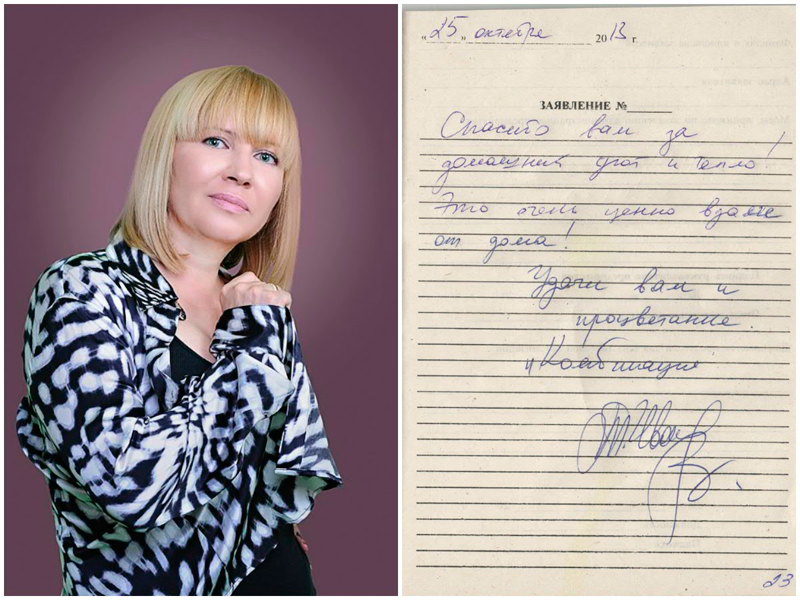 "25" октября 2013 г.
ЗАЯВЛЕНИЕ №
Спасибо вам за
домашний уют и тепло!
Это очень ценно вдали
от дома!
Удачи вам и
процветание.
"Комбинация
23